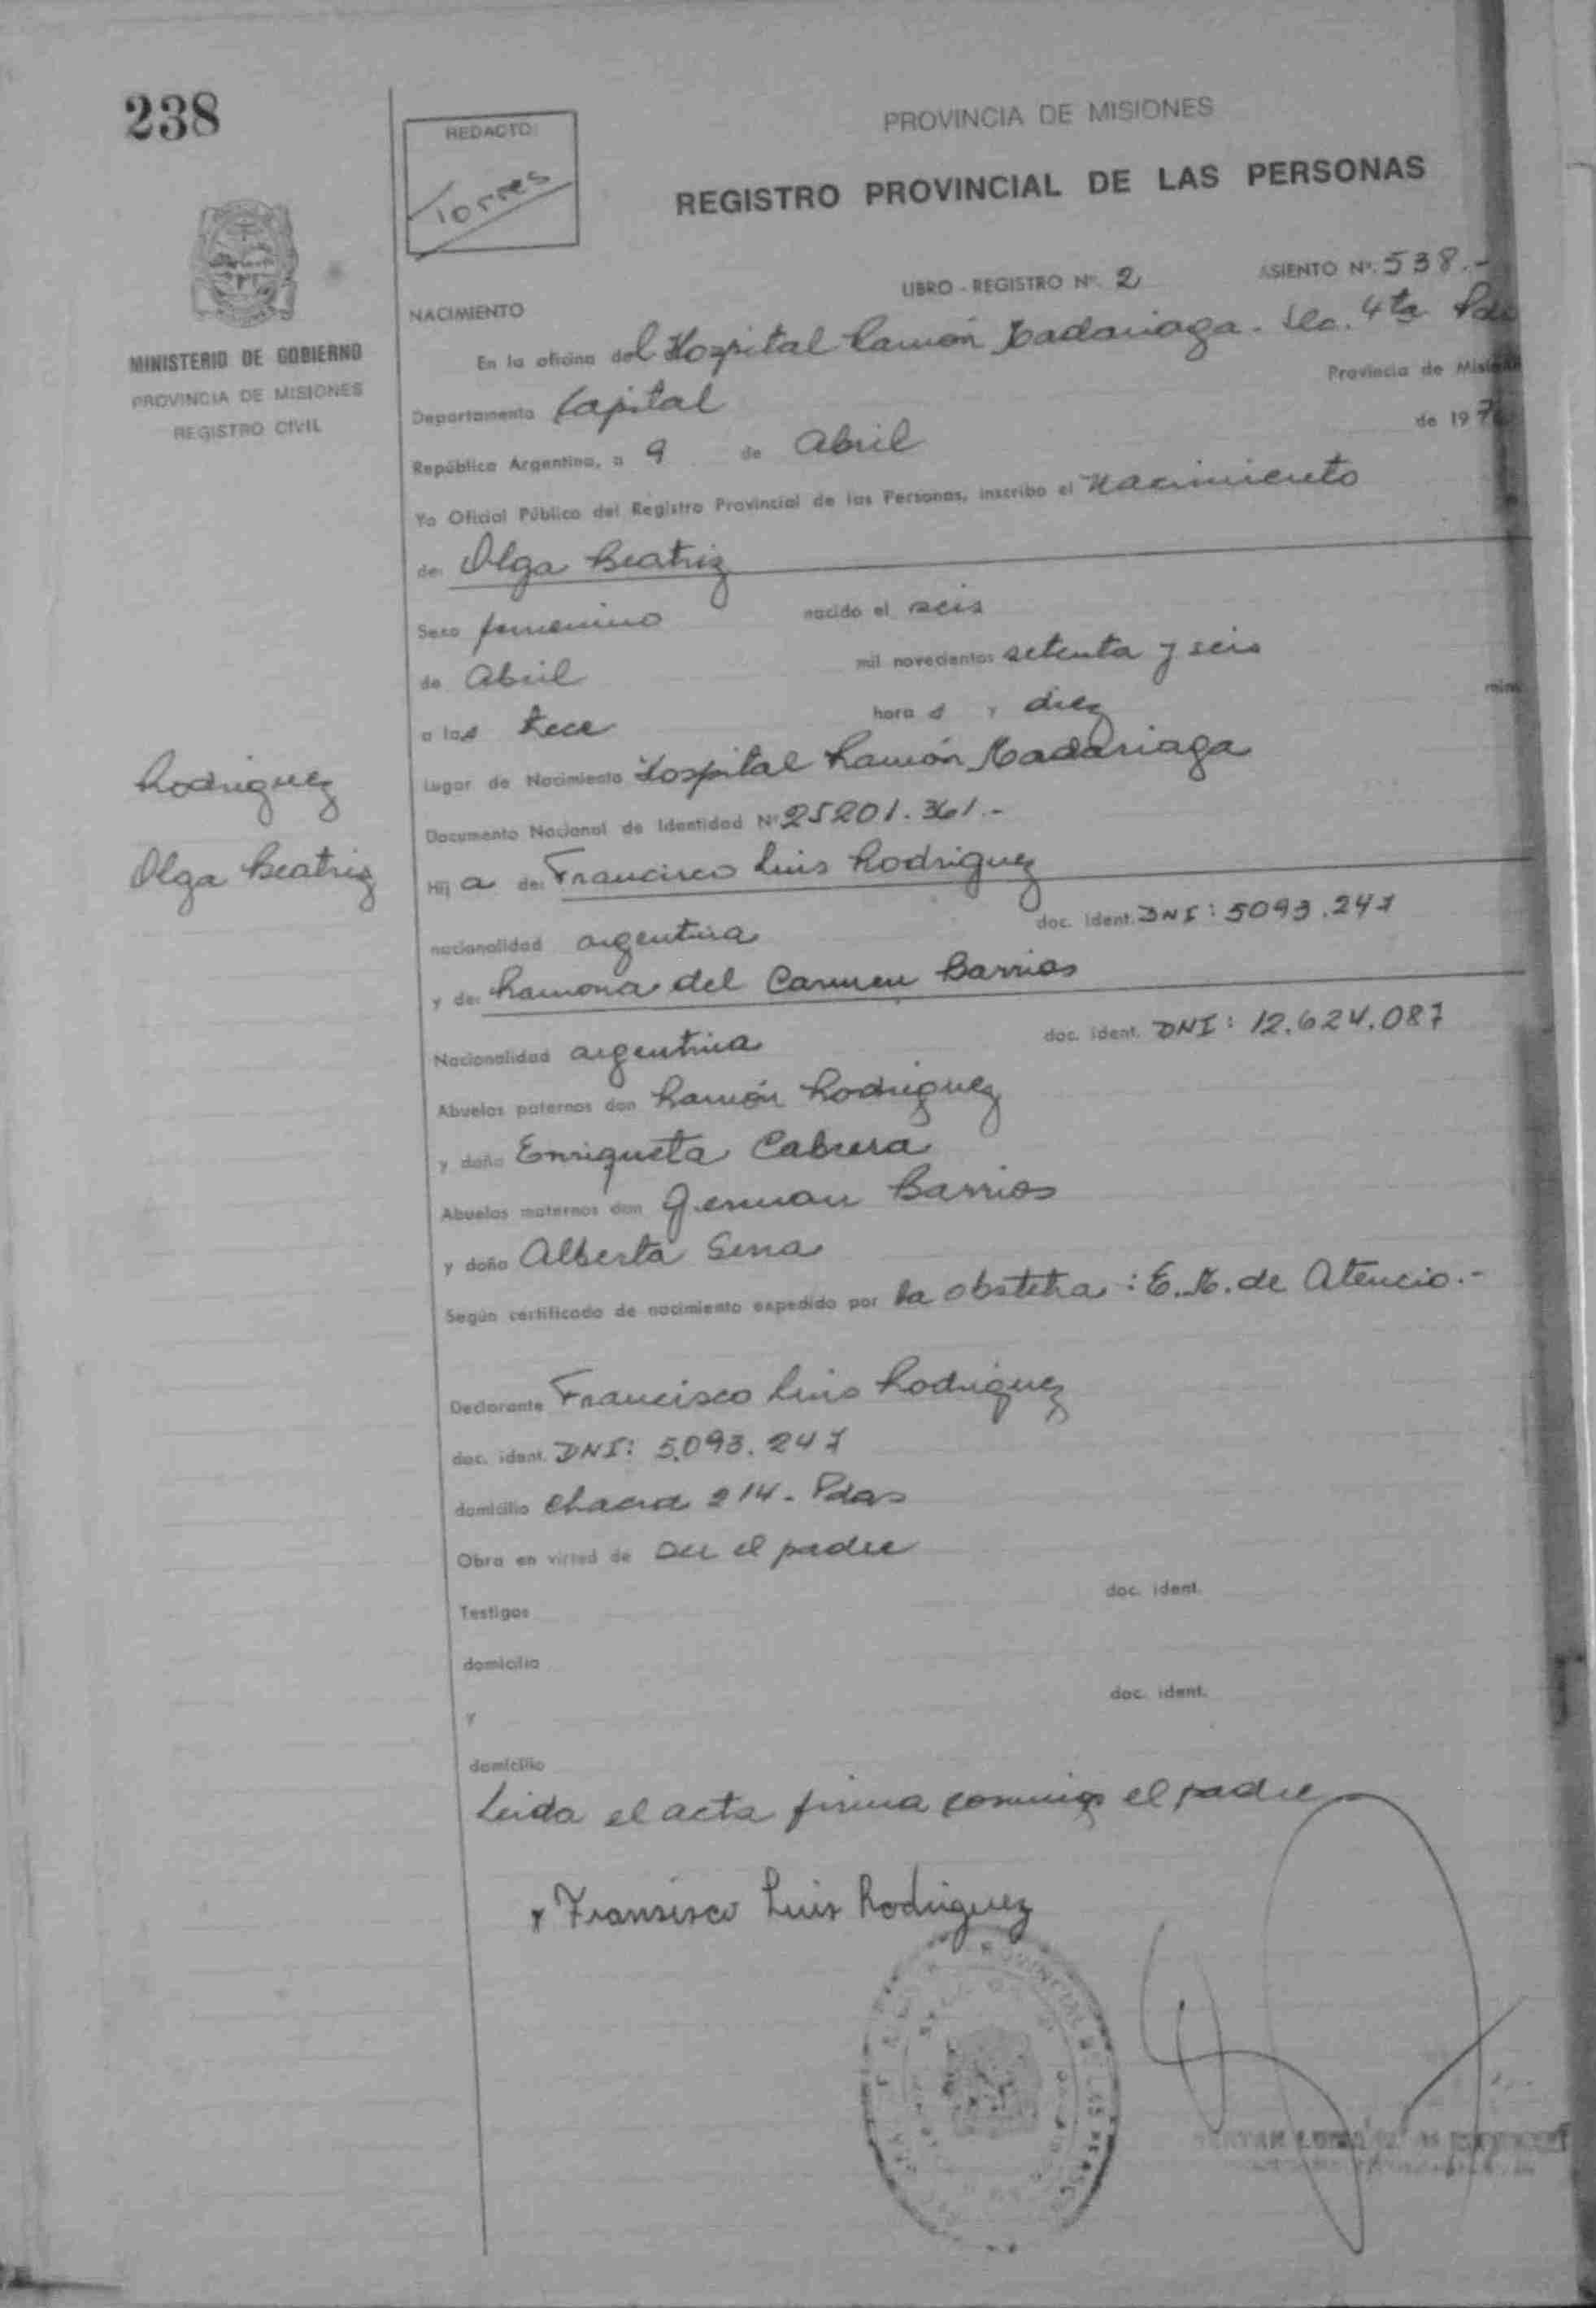 238
REDACTO:
Torres
PROVINCIA DE MISIONES
REGISTRO PROVINCIAL DE LAS PERSONAS
MINISTERIO DE GOBIERNO
PROVINCIA DE MISIONES
REGISTRO CIVIL
LIBRO - REGISTRO Nº. 2 ASIENTO Nº. 538.-
NACIMIENTO
En la oficina del Hospital Ramón Madariaga. Sec. 4ta
Departamento Capital Provincia de
República Argentina, a 9 de Abril de 197
Yo Oficial Público del Registro Provincial de las Personas, inscribo el Nacimiento
de: Olga Beatriz
Sexo femenino nacido el seis
de Abril mil novecientos setenta y seis
a las trece hora s y diez
Lugar de Nacimiento Hospital Ramón Madariaga
Documento Nacional de Identidad Nº 25201.361.-
Rodriguez
Olga Beatriz
Hij a de: Francisco Luis Rodriguez
nacionalidad argentina doc. ident. DNI: 5093.247
y de: Ramona del Carmen Barrios
Nacionalidad argentina doc. ident. DNI: 12.624.087
Abuelos paternos don Ramón Rodriguez
y doña Enriqueta Cabrera
Abuelos maternos don German Barrios
y doña Alberta
Según certificado de nacimiento expedido por la obstetra: E.M. de Atencio.-
Declarante Francisco Luis Rodriguez
doc. ident. DNI: 5.093.247
domicilio Chacra 214 - Pdas
Obra en virtud de ser el padre
Testigos doc. ident.
domicilio
y doc. ident.
domicilio
Leida el acta firma conmigo el padre
x Fransisco Luis Rodriguez